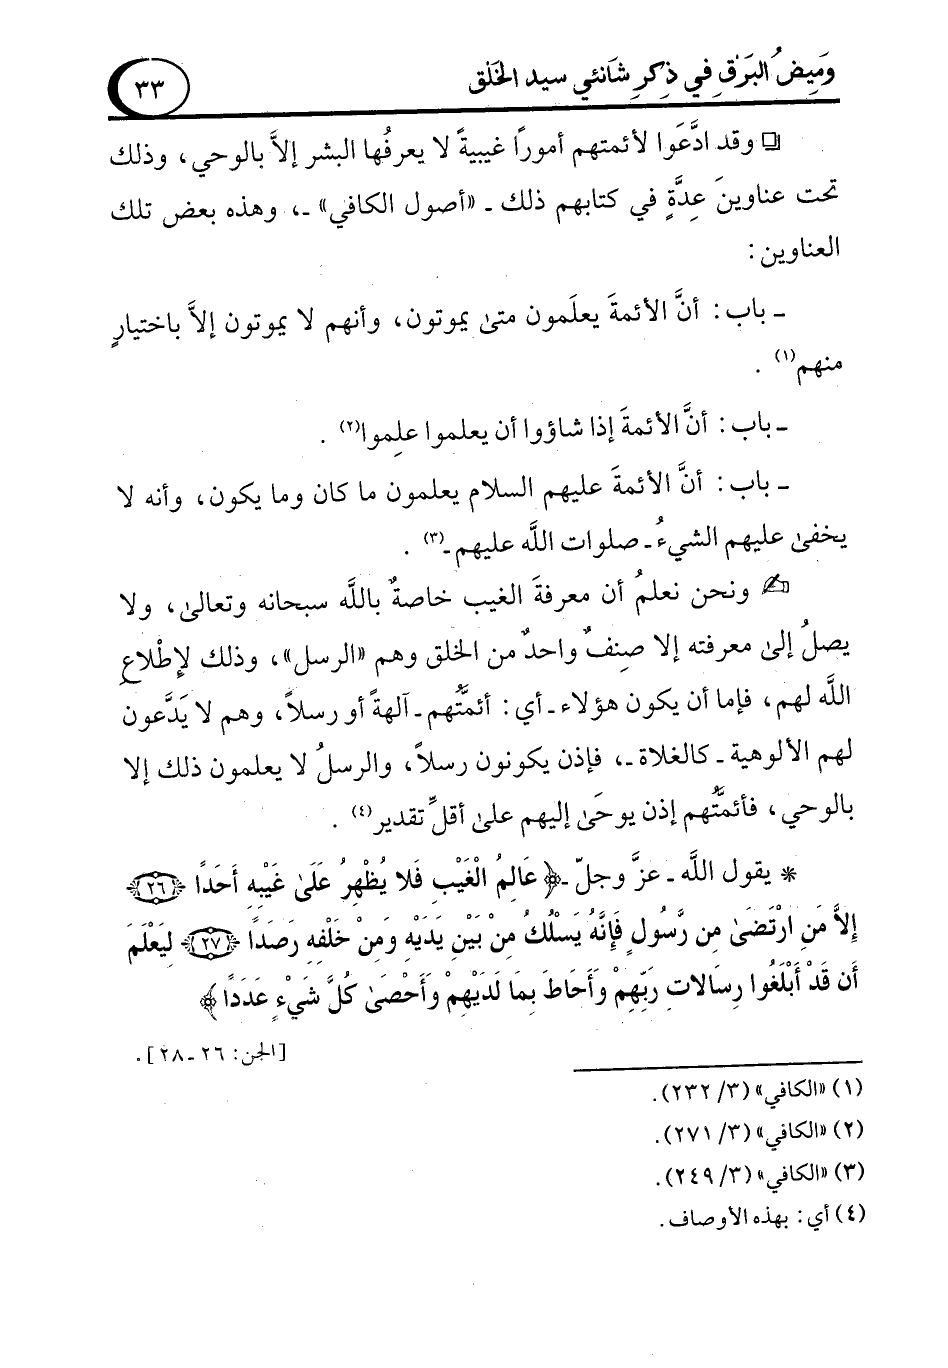 وَمِيضُ البَرَقِ في ذِكرِ شَانئي سيد الخَلق
٣٣
وقد ادَّعَوا لأئمتهم أموراً غيبيةً لا يعرفُها البشر إلاَّ بالوحي، وذلك
تحت عناوينَ عِدَّةٍ في كتابهم ذلك ـ «أصول الكافي» ـ، وهذه بعض تلك
العناوين:
ـ باب: أنَّ الأئمةَ يعلَمون متىٰ يموتون، وأنهم لا يموتون إلاَّ باختيارٍ
منهم(١).
ـ باب: أنَّ الأئمةَ إذا شاؤوا أن يعلموا علِموا(٢).
ـ باب: أنَّ الأئمةَ عليهم السلام يعلمون ما كان وما يكون، وأنه لا
يخفىٰ عليهم الشيءُ ـ صلوات اللَّه عليهم ـ(٣).
ونحن نعلمُ أن معرفةَ الغيب خاصةٌ باللَّه سبحانه وتعالىٰ، ولا
يصلُ إلىٰ معرفته إلا صِنفٌ واحدٌ من الخلق وهم «الرسل»، وذلك لإطْلاعِ
اللَّه لهم، فإما أن يكون هؤلاء ـ أي: أئمتُّهم ـ آلهةً أو رسلاً، وهم لا يَدَّعون
لهم الألوهية ـ كالغلاة ـ، فإذن يكونون رسلاً، والرسلُ لا يعلمون ذلك إلا
بالوحي، فأئمتُّهم إذن يوحَىٰ إليهم علىٰ أقلِّ تقدير(٤).
* يقول اللَّه ـ عزَّ وجلّ ـ ﴿عَالِمُ الْغَيْبِ فَلا يُظْهِرُ عَلَىٰ غَيْبِهِ أَحَدًا ﴿٢٦﴾
إِلاَّ مَنِ ارْتَضَىٰ مِن رَّسُولٍ فَإِنَّهُ يَسْلُكُ مِنْ بَيْنِ يَدَيْهِ وَمِنْ خَلْفِهِ رَصَدًا ﴿٢٧﴾ لِيَعْلَمَ
أَن قَدْ أَبْلَغُوا رِسَالاتِ رَبِّهِمْ وَأَحَاطَ بِمَا لَدَيْهِمْ وَأَحْصَىٰ كُلَّ شَيْءٍ عَدَدًا﴾
[الجن: ٢٦ ـ ٢٨].
(١) «الكافي» (٣/ ٢٣٢).
(٢) «الكافي» (٣/ ٢٧١).
(٣) «الكافي» (٣/ ٢٤٩).
(٤) أي: بهذه الأوصاف.